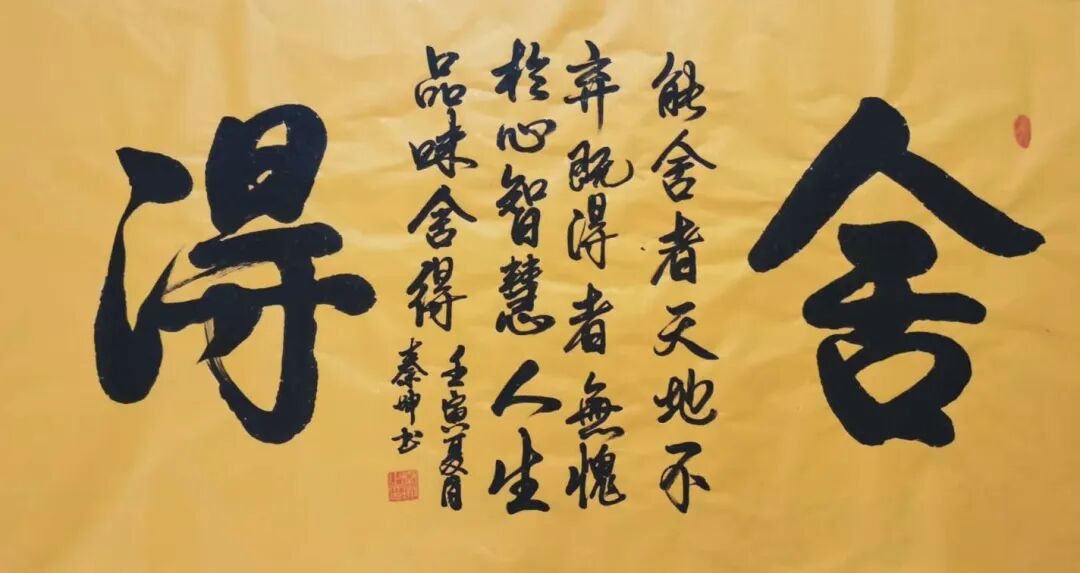 舍
能舍者天地不
弃既得者無愧
於心智慧人生
品味舍得
壬寅夏月
秦坤书
得